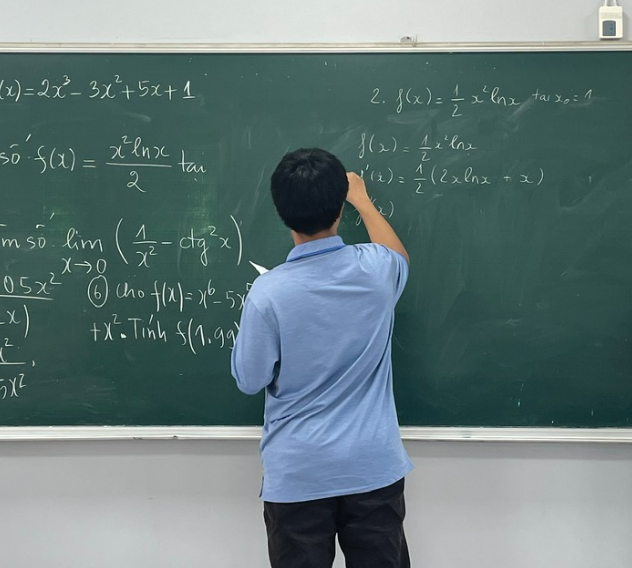 (x) = 2x³ - 3x² + 5x + 1
số f(x) = x²lnx / 2 tại
m số lim x→0 (1/x² - ctg²x)
05x²
x)
x²
5x²
⑥ cho f(x) = x⁶ - 5x⁵
+x². Tính f(1,99
2. f(x) = 1/2 x²lnx tại x₀ = 1
f(x) = 1/2 x²lnx
'(x) = 1/2 (2xlnx + x)
x)